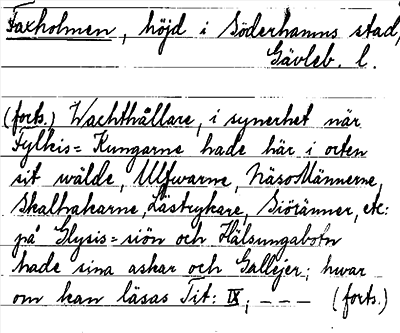 Faxholmen, höjd i Söderhamns stad,
Gävleb. l.
(forts.) Wachthållare, i synerhet när
Fylkis= Kungarne hade här i orten
sit wälde, Ulfwarne, NäsoMännerne,
Skalhakarne, Lästrykare, Siöränner, etc:
på Glysis=siön och Hälsungabotn
hade sina askar och Gallejer; hwar
om kan läsas Tit: IX; - - - (forts.)